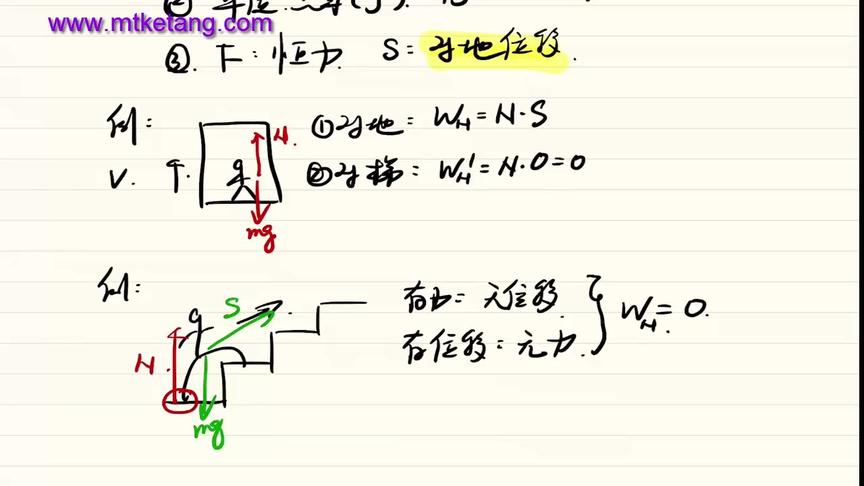 ② 单位:焦耳(J).
www.mtketang.com
③. F:恒力. S=对地位移.
例: ①对地: W_N=N·S
N.
V. ↑. ②对梯: W_N'=N·0=0
mg
例:
S
有力=无位移.
N
有位移:无力. } W_N=0.
mg